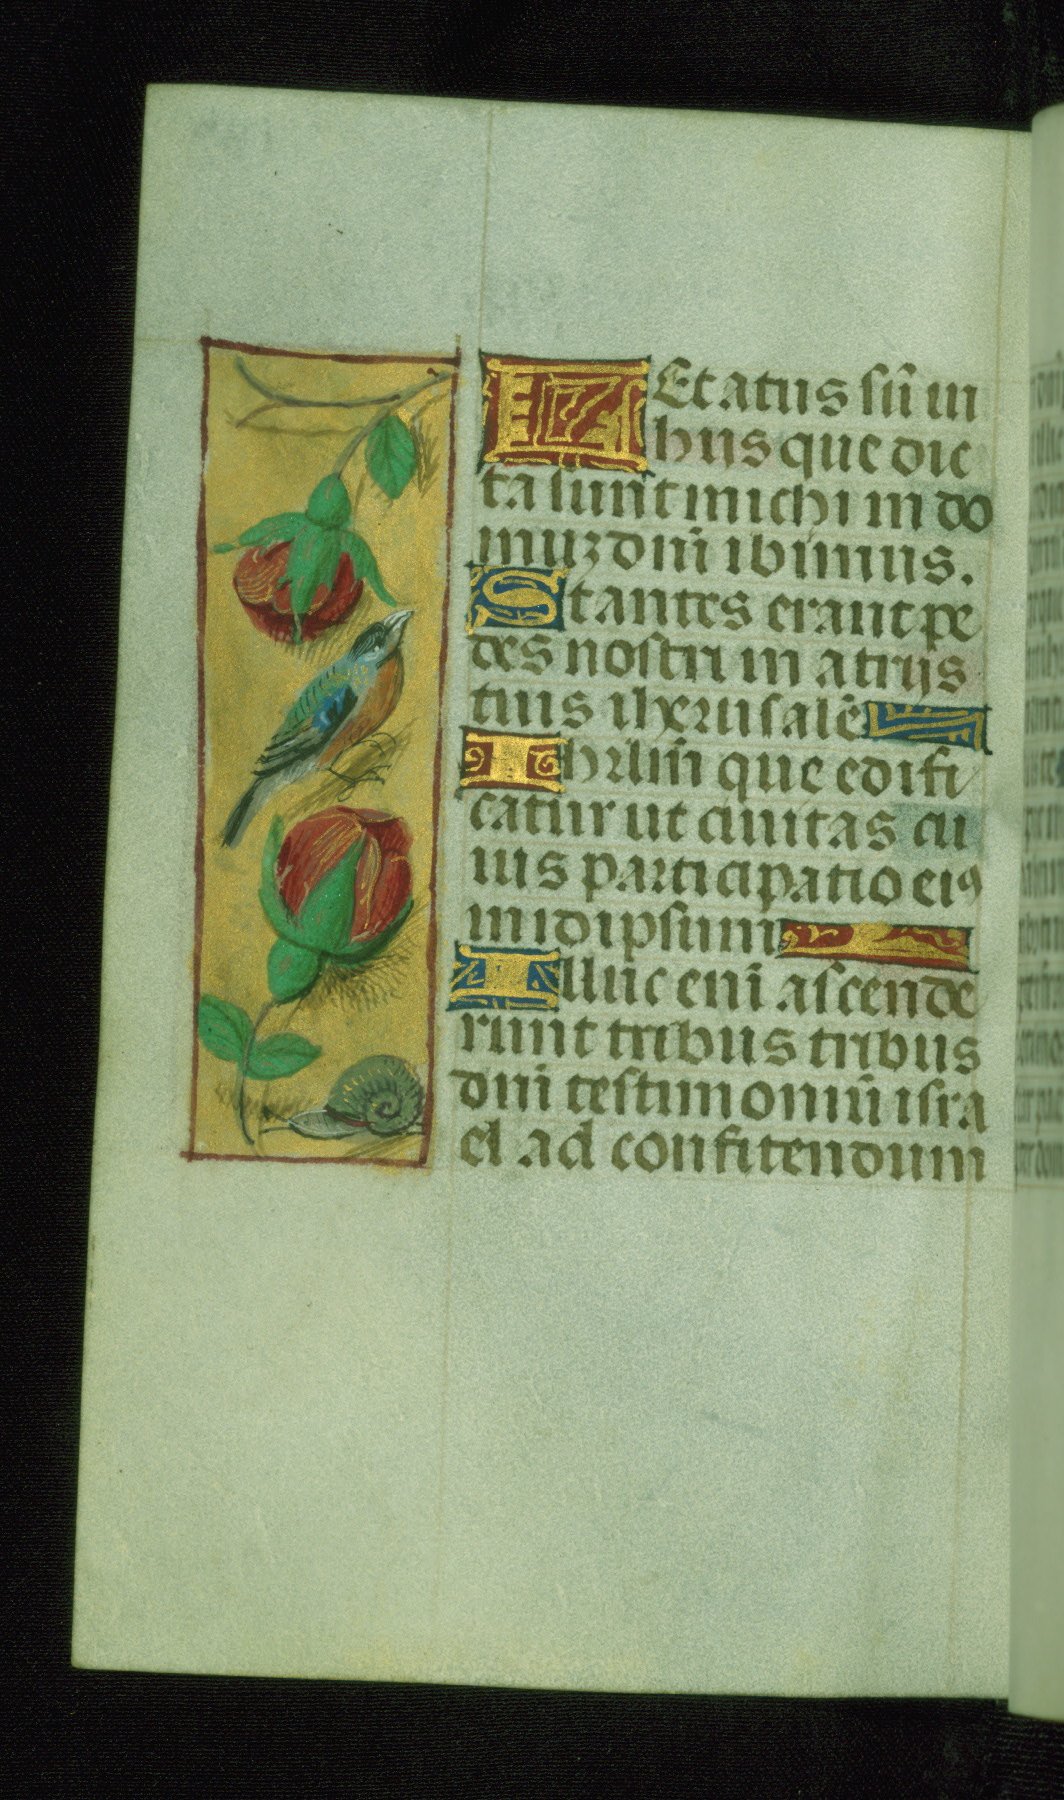 LEtatus sũ in
hiis que dic
ta sunt michi in do
muꝫ dñi ibimus.
Stantes erant pe
des nostri in atrijs
tuis iherusalẽ
Ihrl̃m que edifi
catur ut ciuitas cu
ius participatio eiꝰ
in idipsum
Illuc eni ascende
runt tribus tribus
dñi testimoniũ isra
el ad confitendum